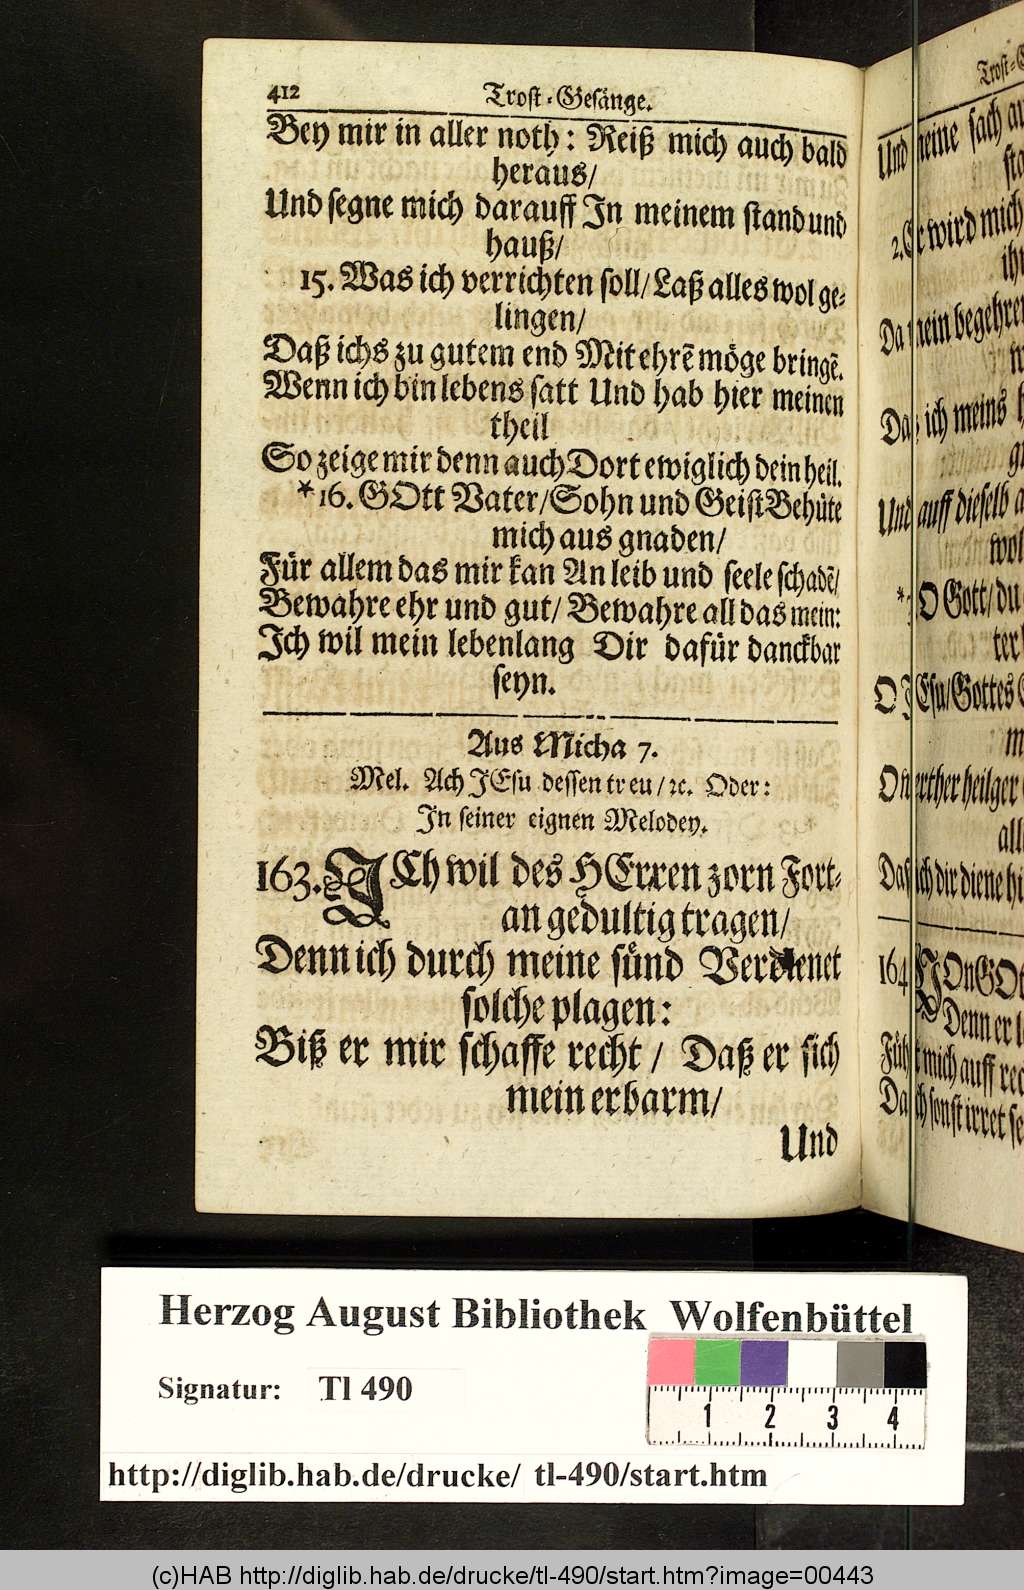 412 Trost-Gesänge.
Bey mir in aller noth: Reiß mich auch bald
heraus/
Und segne mich darauff In meinem stand und
hauß/
15. Was ich verrichten soll/ Laß alles wol ge-
lingen/
Daß ichs zu gutem end Mit ehrẽ möge bringẽ.
Wenn ich bin lebens satt Und hab hier meinen
theil
So zeige mir denn auch Dort ewiglich dein heil.
*16. GOtt Vater/ Sohn und Geist Behüte
mich aus gnaden/
Für allem das mir kan An leib und seele schadẽ/
Bewahre ehr und gut/ Bewahre all das mein:
Ich wil mein lebenlang Dir dafür danckbar
seyn.
Aus Micha 7.
Mel. Ach JEsu dessen treu/ ꝛc. Oder:
In seiner eignen Melodey.
163. ICh wil des HErren zorn Fort-
an gedultig tragen/
Denn ich durch meine sünd Verdienet
solche plagen:
Biß er mir schaffe recht/ Daß er sich
mein erbarm/
Und
Trost-G
Und meine sach
2. Er wird mich
Da mein begehren
Daß ich meins
Und auff dieselb
wol
* 3. O Gott/ du
O JEsu/ Gottes
O werther heilger
all
Daß ich dir diene
164. VOn GOtt
Denn er
Führt mich auff
Da ich sonst irret
Herzog August Bibliothek Wolfenbüttel
Signatur: Tl 490
1 2 3 4
http://diglib.hab.de/drucke/ tl-490/start.htm
(c)HAB http://diglib.hab.de/drucke/tl-490/start.htm?image=00443